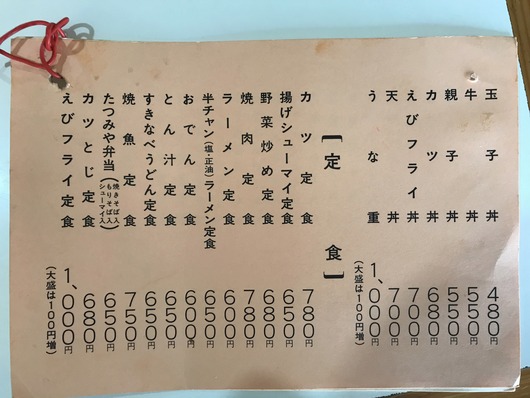 玉子丼 480円
牛丼 550円
親子丼 550円
カツ丼 680円
えびフライ丼 700円
天丼 700円
うな重 1、000円
(大盛は100円増)
【定食】
カツ定食 780円
揚げシューマイ定食 650円
野菜炒め定食 680円
焼肉定食 780円
ラーメン定食 600円
半チャン(塩・正油)ラーメン定食 650円
おでん定食 600円
とん汁定食 650円
すきなべうどん定食 650円
焼魚定食 750円
たつみや弁当(焼きそば入 もりそば入 シューマイ入) 650円
カツとじ定食 680円
えびフライ定食 1、000円
(大盛は100円増)